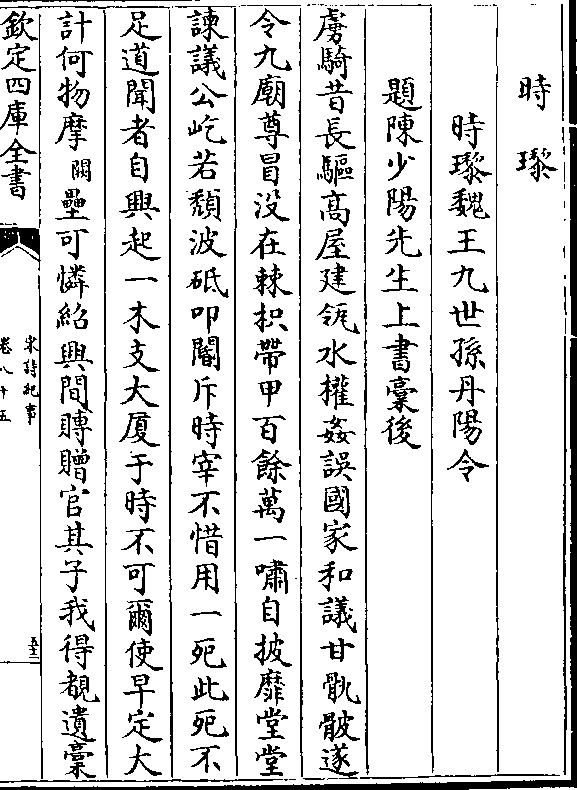 時瓈
時瓈魏王九世孫丹陽令
題陳少陽先生上書稾後
虜騎昔長驅高屋建瓴水權姦誤國家和議甘骩骳遂
令九廟尊冒没在棘枳帶甲百餘萬一嘯自披靡堂堂
諫議公屹若頹波砥叩閽斥時宰不惜用一死此死不
足道聞者自興起一木支大厦于時不可爾使早定大
計何物摩闕壘可憐紹興間賻贈官其子我得覩遺稾
欽定四庫全書
宋詩紀事
卷八十五